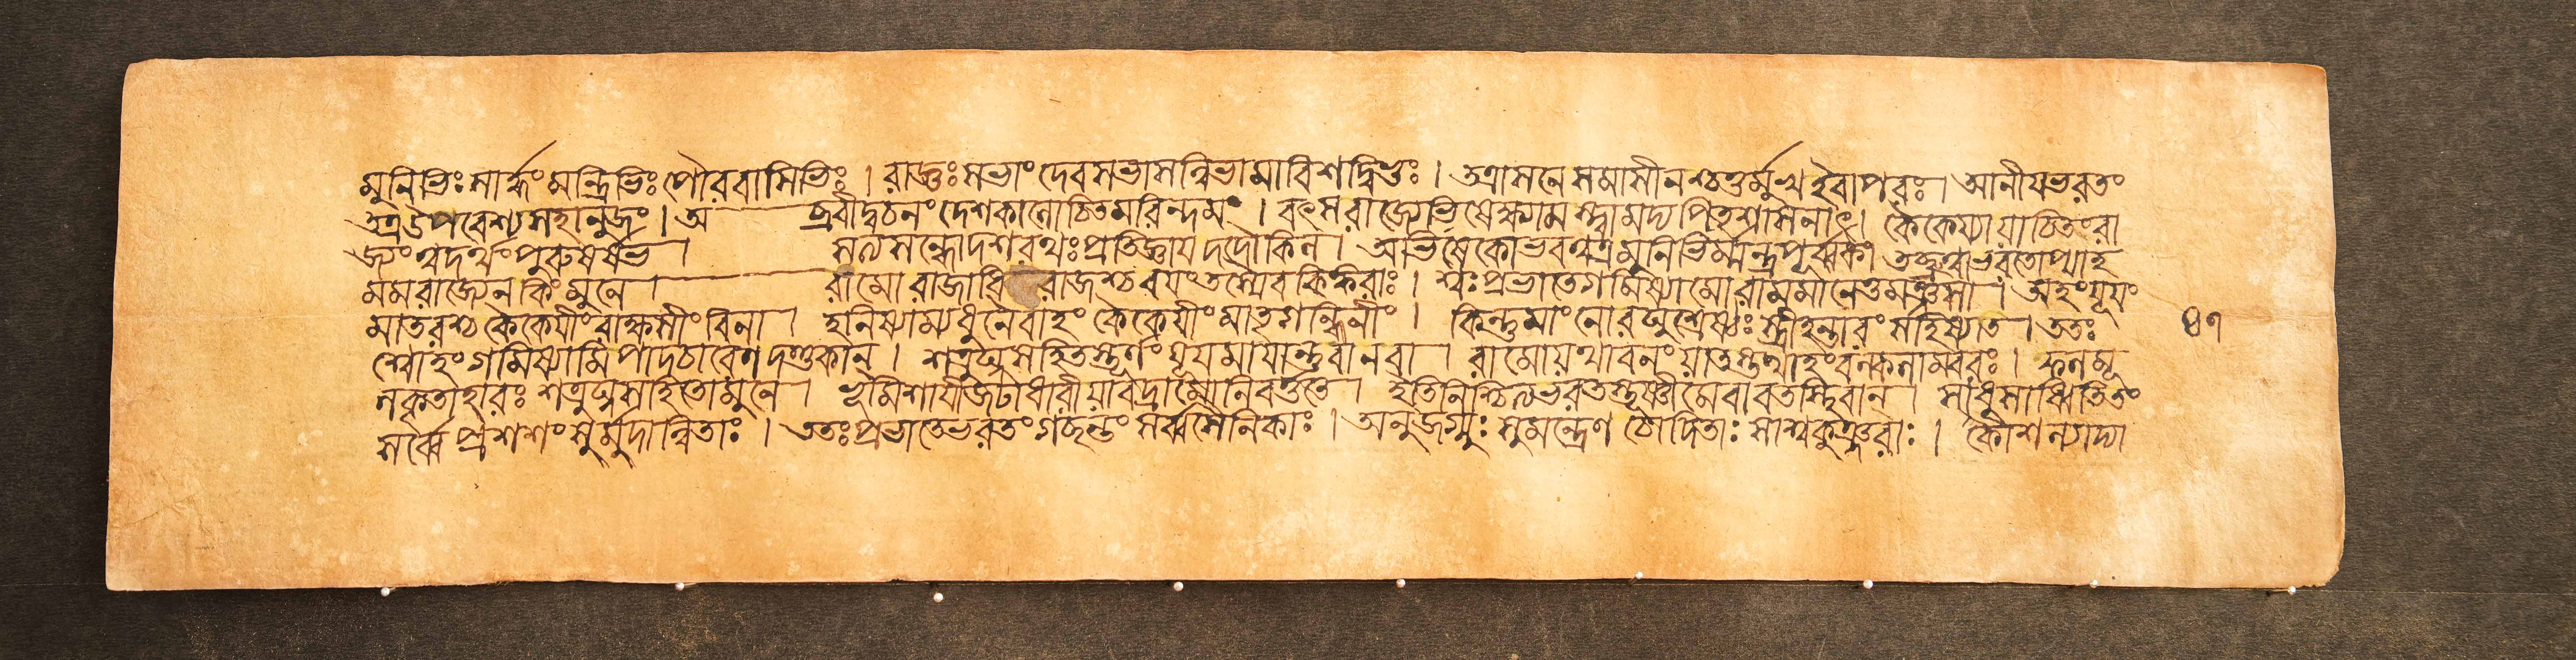 মুনিভিঃ সার্দ্ধং মন্ত্রিভিঃ পৌরবাসিভিঃ । রাজ্ঞঃ সভাং দেবসভাসন্নিভামাবিশদ্বিভুঃ । তত্রাসনে সমাসীনশ্চতুর্মুখ ইবাপরঃ । আনীয ভরতং
তত্র উপবেশ্য সহানুজং । অ ব্রবীদ্বচনং দেশকালোচিতমরিন্দমং । বৎস রাজ্যেভিষেক্ষ্যামস্ত্বামদ্য পিতৃশাসনাৎ । কৈকেয্যা যাচিতং রা
জ্যং ত্বদর্থং পুরুষর্ষভ । সত্যসন্ধো দশরথঃ প্রতিজ্ঞায দদৌ কিল । অভিষেকো ভবত্বত্র মুনিভির্ম্মন্ত্রপূর্ব্বকং । তচ্ছ্রুত্বা ভরতোপ্যাহ
মম রাজ্যেন কিং মুনে । রামো রাজাধিরাজশ্চ বযং তস্যৈব কিঙ্করাঃ । শ্বঃ প্রভাতে গমিষ্যামো রামমানেতুমঞ্জসা । অহং যূযং
মাতরশ্চ কৈকেযীং রাক্ষসীং বিনা । হনিষ্যাম্যধুনৈবাহং কৈকেযীং মাতৃগন্ধিনীং । কিন্তু মাং নো রঘুশ্রেষ্ঠঃ স্ত্রীহন্তারং সহিষ্যতি । ততঃ
শ্বোহং গমিষ্যামি পাদচারেণ দণ্ডকান্ । শত্রুঘ্নসহিতস্তূর্ণং যূযমাযান্তু বা ন বা । রামো যথা বনং যাতস্তথাহং বল্কলাম্বরঃ । ফলমূ
লকৃতাহারঃ শত্রুঘ্নসহিতো মুনে । ভূমিশাযী জটাধারী যাবদ্রামো নিবর্ত্ততে । ইতি নিশ্চিত্য ভরতস্তূষ্ণীমেবাবতস্থিবান্ । সাধু সাধ্বিতি তং
সর্ব্বে প্রশশংসুর্মুদান্বিতাঃ । ততঃ প্রভাতে ভরতং গচ্ছন্তং সর্ব্বসৈনিকাঃ । অনুজগ্মুঃ সুমন্ত্রেণ চোদিতাঃ সাশ্বকুঞ্জরাঃ । কৌশল্যাদ্যা